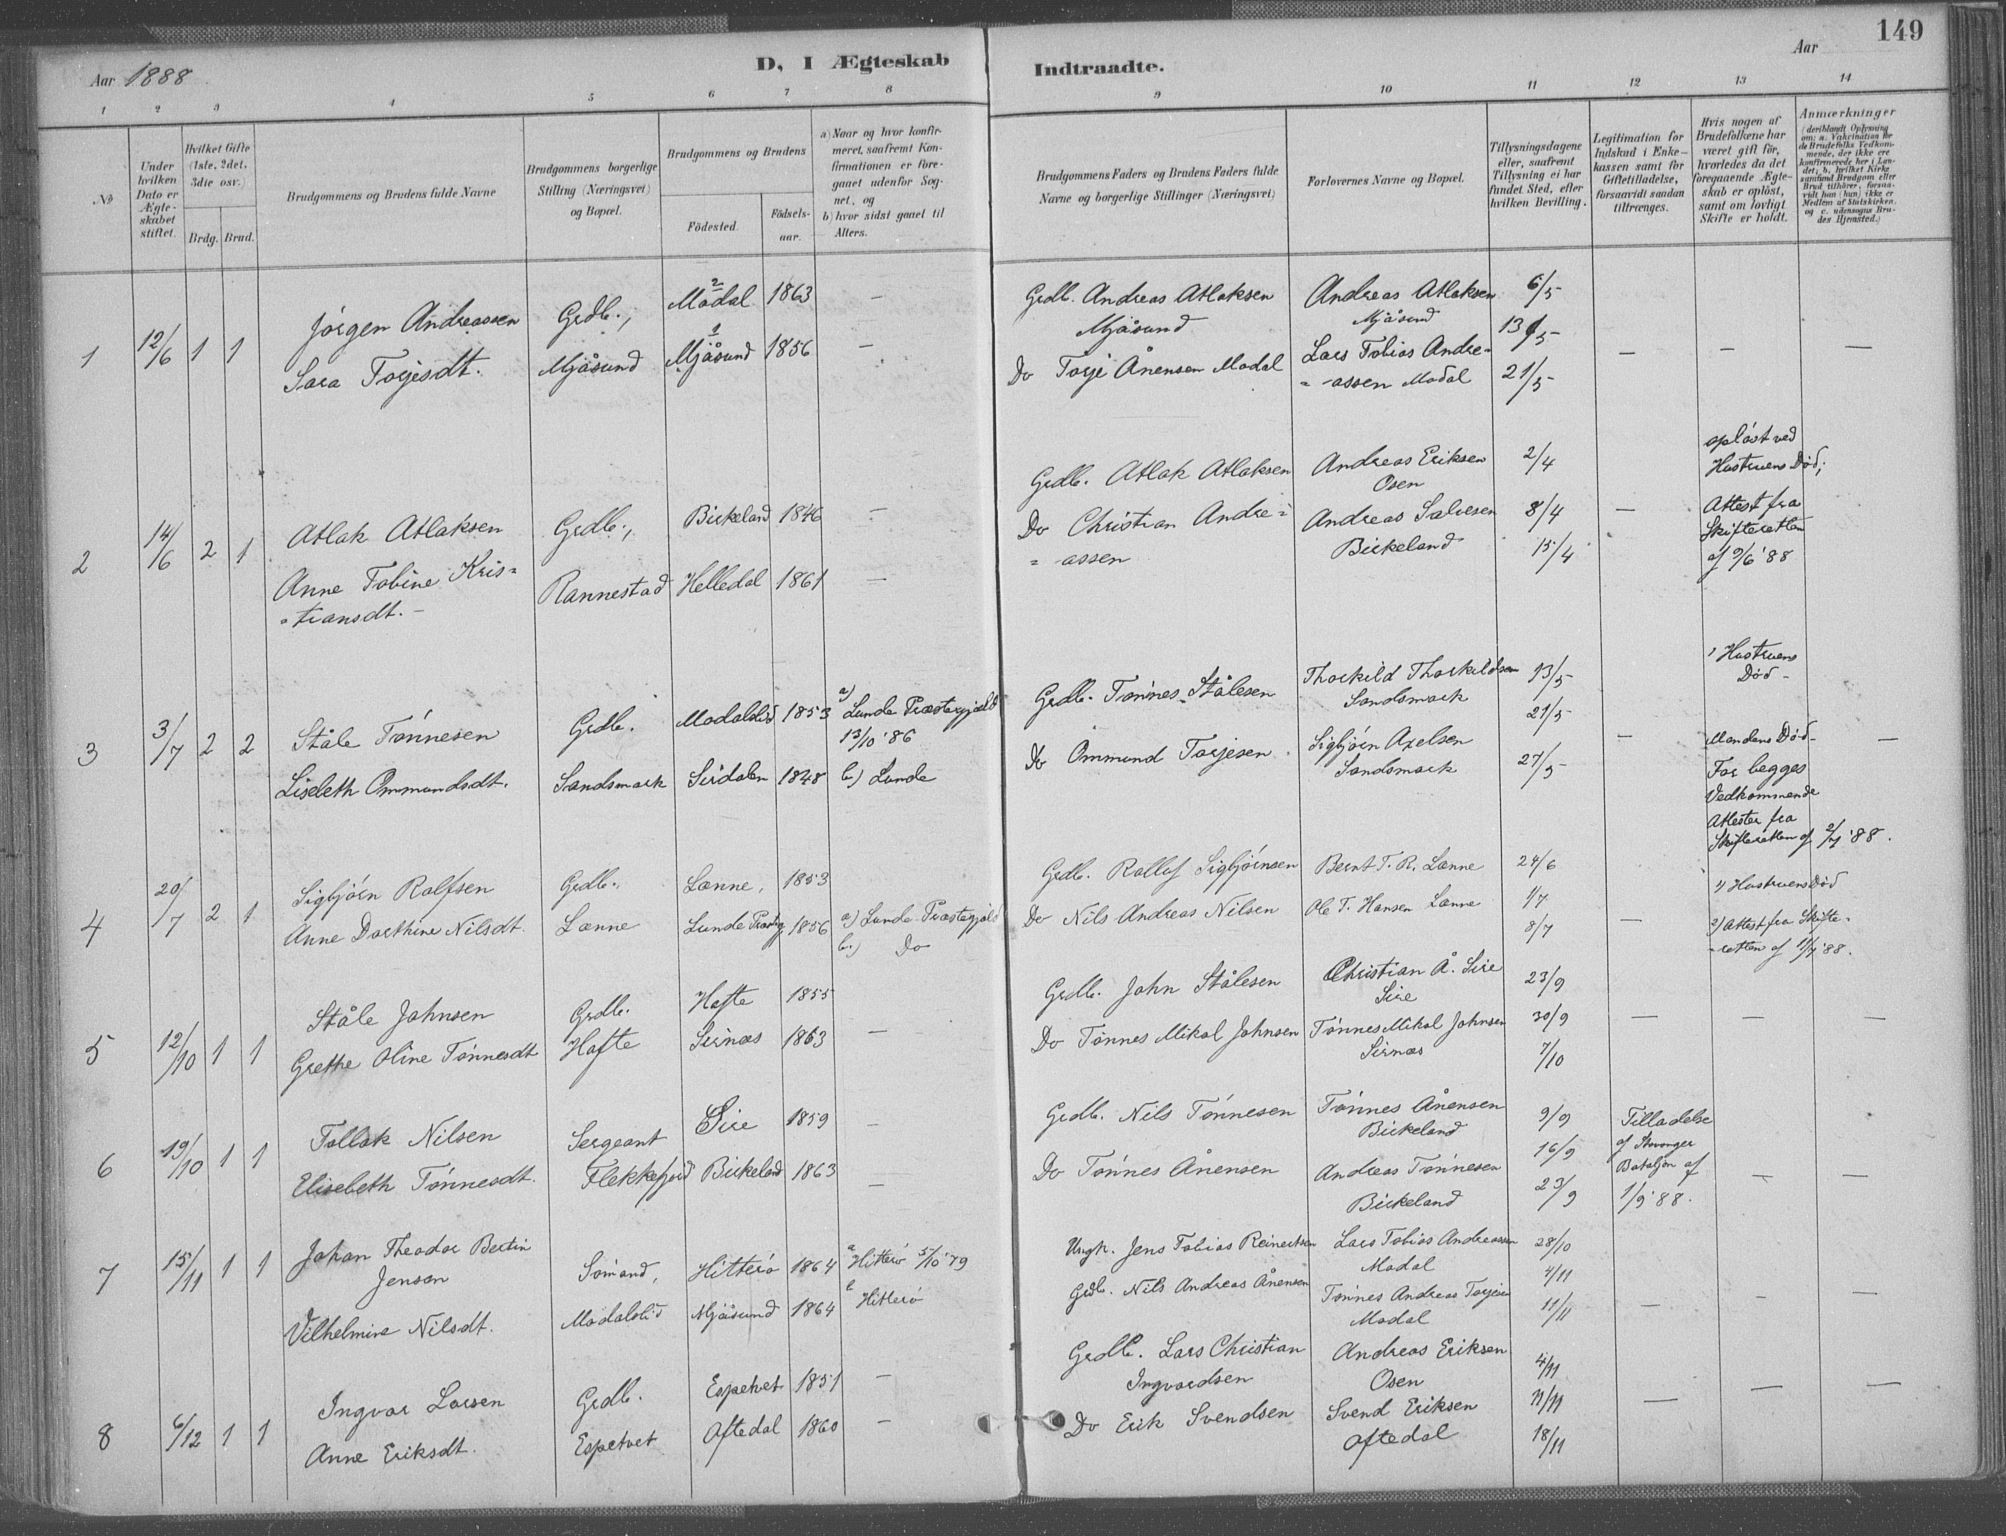 Aar 1888
D, I Ægteskab
Indtraadte.
Aar
149
1 2 3 4 5 6 7 8
9 10 11 12 13 14
No
Under hvilken Dato er Ægteskabet stiftet.
Hvilket Gifte (1ste, 2det, 3die osv.)
Brdg. Brud.
Brudgommens og Brudens fulde Navne
Brudgommens borgerlige Stilling (Næringsvei) og Bopæl.
Brudgommens og Brudens
Födested.
Födsels-aar.
a) Naar og hvor konfirmeret, saafremt Konfirmationen er foregaaet udenfor Sognet, og
b) hvor sidst gaaet til Alters.
Brudgommens Faders og Brudens Faders fulde Navne og borgerlige Stillinger (Næringsvei)
Forlovernes Navne og Bopæl.
Tillysningsdagene eller, saafremt Tillysning ei har fundet Sted, efter hvilken Bevilling.
Legitimation for Indskud i Enkekassen samt for Giftetilladelse, forsaavidt saadan tiltrænges.
Hvis nogen af Brudefolkene har været gift för, hvorledes da det foregaaende Ægteskab er oplöst, samt om lovligt Skifte er holdt.
Anmærkninger
(deriblandt Oplysning om: a. Vakcination for de Brudefolks Vedkommende, der ikke ere konfirmerede her i Landet; b. hvilket Kirkesamfund Brudgom eller Brud tilhörer, forsaavidt han (hun) ikke er Medlem af Statskirken, og c. udensogns Brudes Hjemsted.)
1 12/6 1 1
Jørgen Andreassen
Sara Torjesdt.
Grdb.,
Mjåsund
2 Modal 1863 —
1 Mjåsund 1856 —
Grdb. Andreas Atlaksen
Mjåsund
Do Torje Ånensen Modal
Andreas Atlaksen
Mjåsund
Lars Tobias Andre=
=assen Modal
6/5
13/5
21/5
— — —
2 14/6 2 1
Atlak Atlaksen
Anne Tobine Kris=
=tiansdt. —
Grdb.,
Rannestad
Birkeland 1846 —
Helledal 1861 —
Grdb. Atlak Atlaksen
Do Christian Andre=
=assen
Andreas Eriksen
Osen
Andreas Salvesen
Birkeland
2/4
8/4
15/4
—
opløst ved
Hustruens Død;
Attest fra
Skifteretten
af 9/6 '88
3 3/7 2 2
Ståle Tønnesen
Lisebeth Ommundsdt.
Grdb.
Sandsmark
Modalslid 1853
Sirdalen 1848
a) Lunde Præstegjæld
13/10 '86
b) Lunde
Grdb. Tønnes Stålesen
Do Ommund Torjesen
Thorkild Thorkildsen
Sandsmark
Sigbjørn Axelsen
Sandsmark
13/5
21/5
27/5
—
' Hustruens
Død -
Mandens Død -
For begges
Vedkommende
Attester fra
Skifteretten af 2/7 '88.
—
4 20/7 2 1
Sigbjørn Rolfsen
Anne Dorthine Nilsdt.
Grdb.
Lønne
Lønne, 1853
Lunde Præstg 1856
a) Lunde Præstegjæld
b.) Do
Grdb. Rolluf Sigbjørnsen
Do Nils Andreas Nilsen
Bernt T. R. Lønne
Ole T. Hansen Lønne
24/6
1/7
8/7
—
1) Hustruens Død
2) Attest fra Skifte=
=retten af 11/7 '88.
5 12/10 1 1
Ståle Johnsen
Grethe Oline Tønnesdt
Grdb.
Hafte
Hafte 1855
Sirnæs 1863
—
Grdb. John Stålesen
Do Tønnes Mikal Johnsen
Christian Å. Sire
Sire
Tønnes Mikal Johnsen
Sirnæs
23/9
30/9
7/10
— — —
6 19/10 1 1
Tollak Nilsen
Elisebeth Tønnesdt.
Sergeant
Flekkefjord
Sire 1859 —
Birkeland 1863 —
Grdb. Nils Tønnesen
Do Tønnes Ånensen
Tønnes Ånensen
Birkeland
Andreas Tønnesen
Birkeland
9/9
16/9
23/9
Tilladelse
af Stavanger
Bataljon af
1/9 '88.
— —
7 15/11 1 1
Johan Theodor Bertin
Jensen
Vilhelmine Nilsdt.
Sømand,
Modalslid
Hitterø 1864
Mjåsund 1864
a Hitterø 5/10 '79
b Hitterø
Ungk. Jens Tobias Reinertsen
Grdb. Nils Andreas Ånensen
Lars Tobias Andreassen
Modal
Tønnes Andreas Torjesen
Modal
28/10
4/11
11/11
— — —
8 6/12 1 1
Ingvar Larsen
Anne Eriksdt.
Grdb.
Espetvet
Espetvet 1851 —
Oftedal 1860 —
Grdb. Lars Christian
Ingvardsen
Do Erik Svendsen
Andreas Eriksen
Osen
Svend Eriksen
Oftedal
4/11
11/11
18/11
— — —